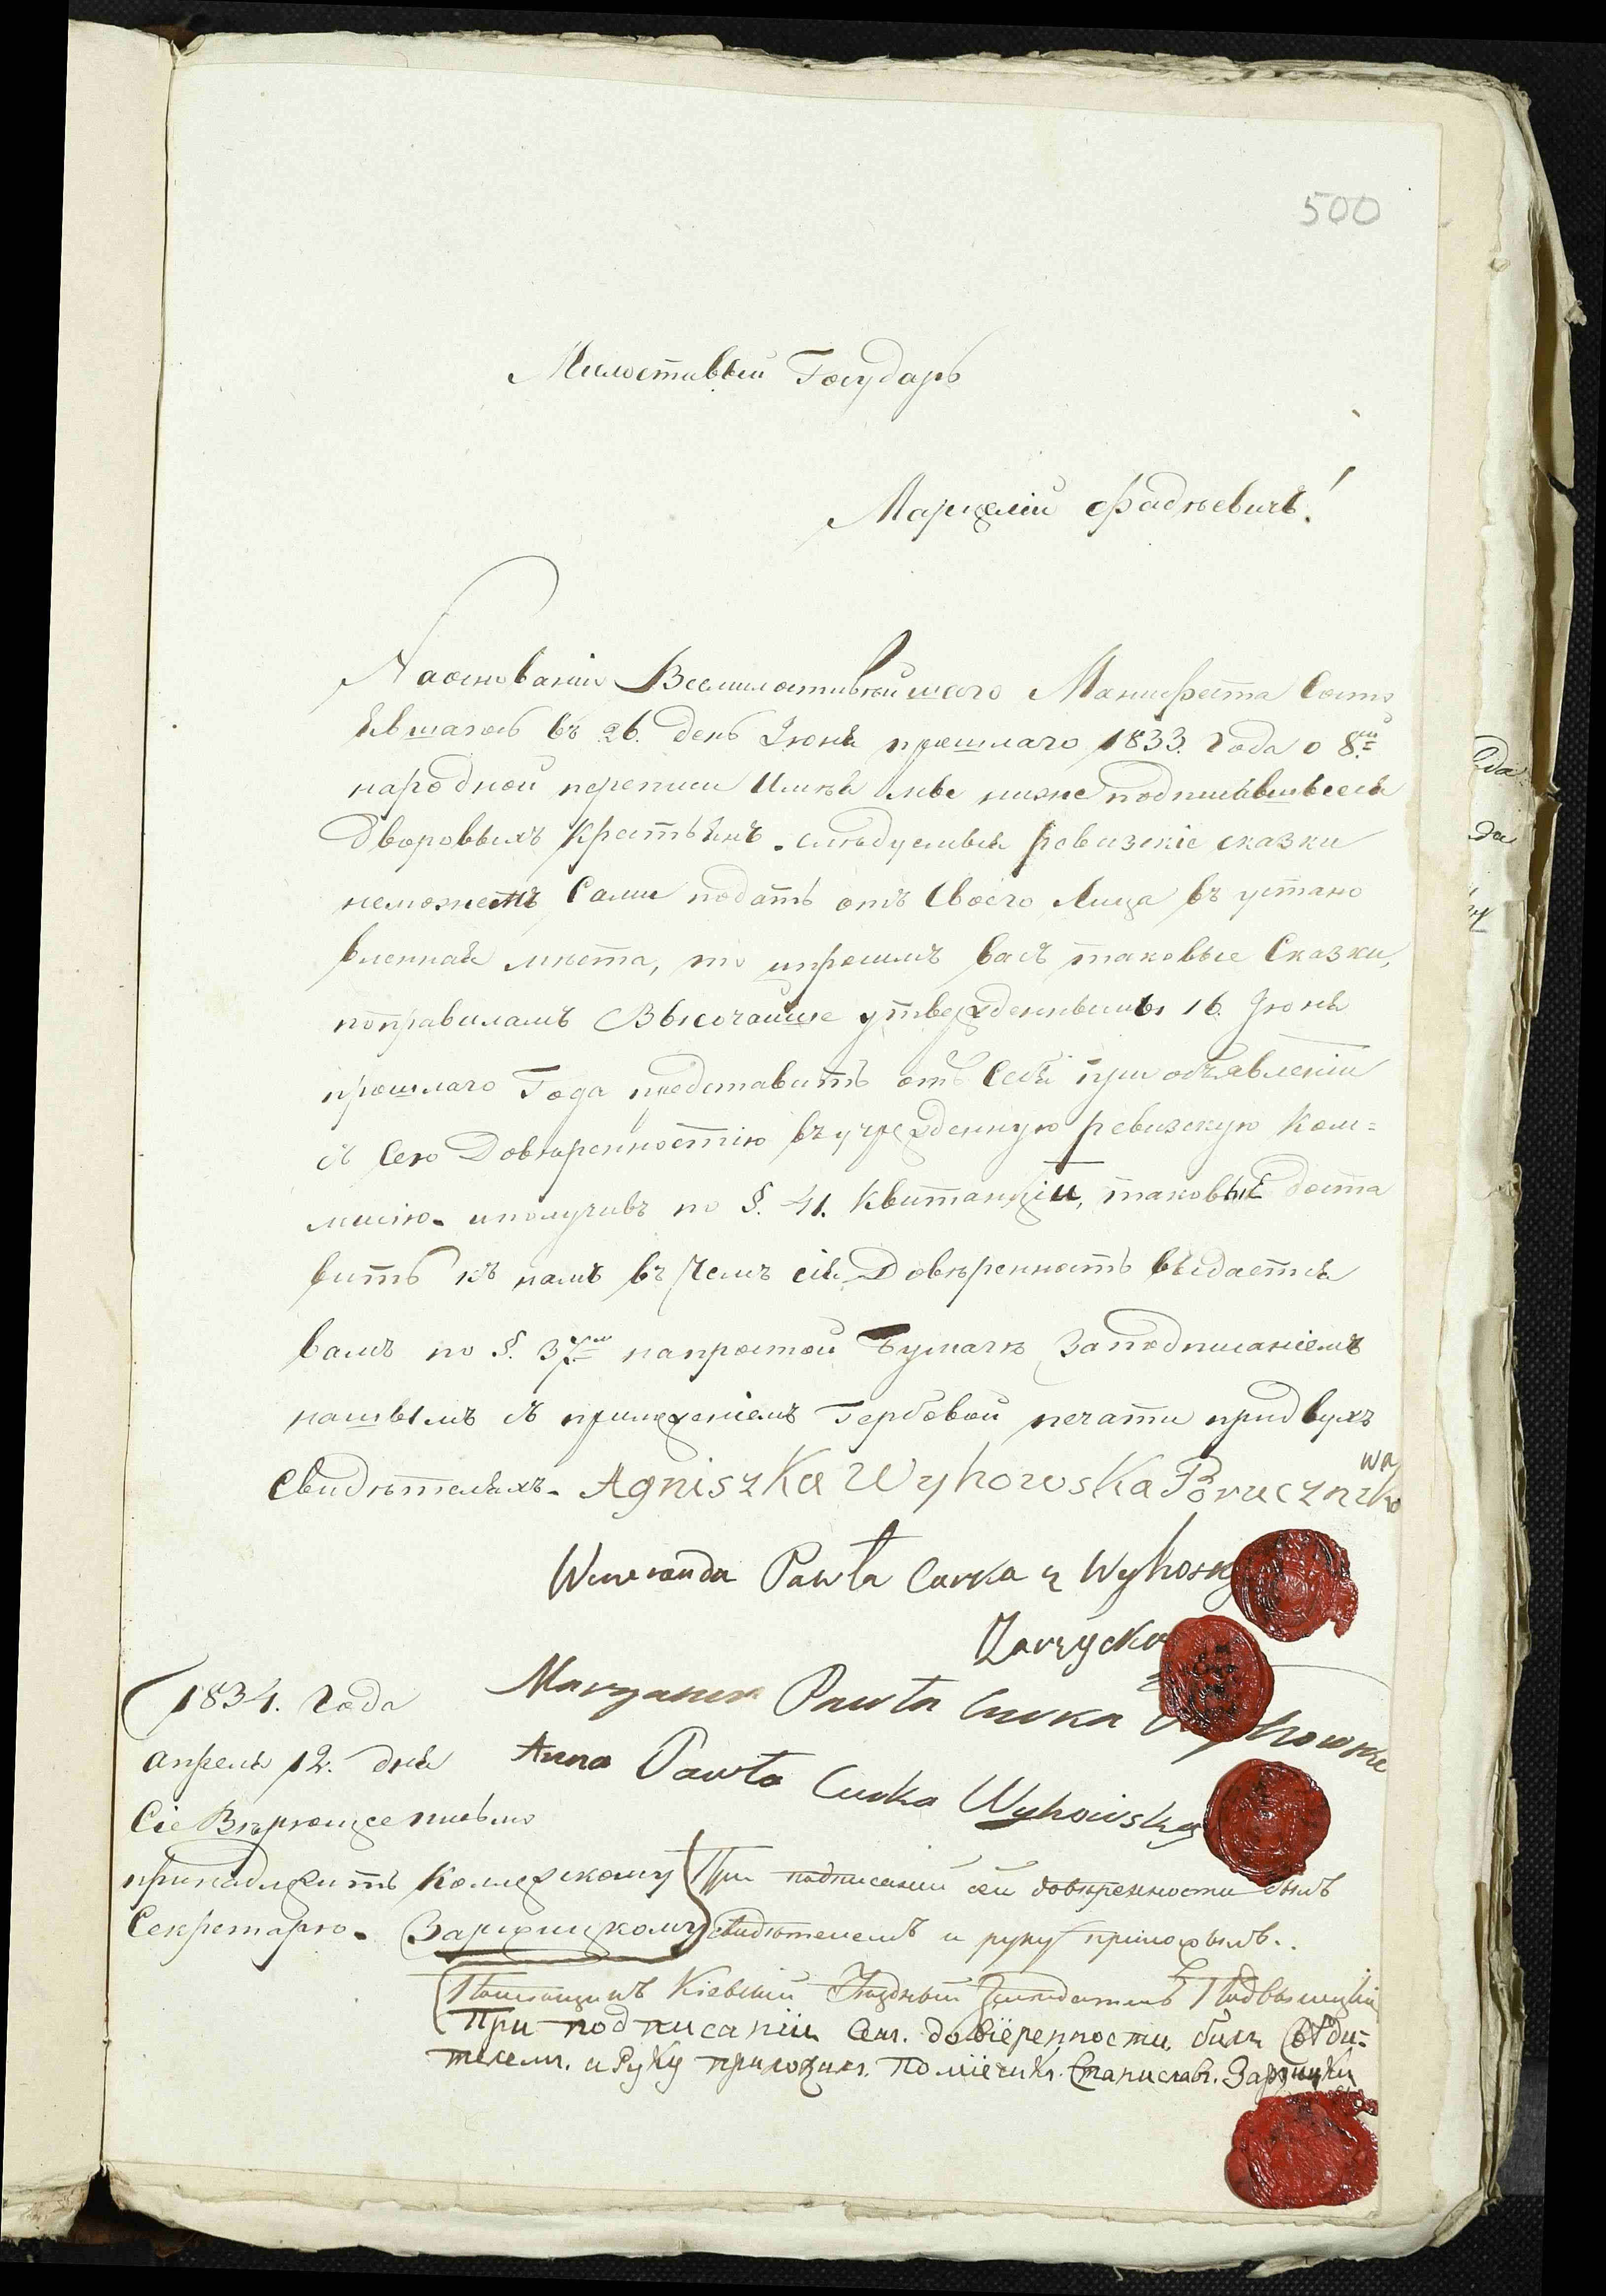 500
Милостивый Государь
Марцелій Фадѣевичъ!
Наосновании Всемилостивѣйшего Манифеста Состо
явшагось въ 26. день Июня прошлаго 1833. года о 8й
народной переписи Имѣя мы ниже подписавшыеся
дворовыхъ Крестьянъ. слѣдуемыя ревизскіе сказки
неможемъ Сами подать отъ Своего Лица въ устано
вленная мѣста, то ипросимъ васъ таковые Сказки,
поправиламъ Высочайше утвержденнымъ 16. Июня
прошлаго Года представить отъ Себя при объявленіи
съ Сею Довѣренностію въ учрежденную ревизскую Ком=
мисію. иполучивъ по §. 41. Квитанціи, таковые доста
вить къ намъ въ чемъ сія Довѣренность выдается
вамъ по §. 37му напростой Бумагѣ Заподписаніемъ
нашымъ съ приложеніемъ Гербовой печати придвухъ
Свидѣтеляхъ. Agniszka Wyhowska Porucznikowa
Pawła Curka z Wyhosk
Zarzycka
Maryanna Pawła Curka Wyhowska
Anna Pawła Curka Wyhowska
1834. года
апрель 12. дня
Сіе Вѣрющее письмо
принадлежитъ Колежскому
Секретарю. Заржицкому
При подписании сей довѣренности былъ
свидѣтелемъ и руку приложылъ..
Кіевский Уѣздный
При подписаніи сей. довіеренности, билъ Свѣди=
телемъ. и Руку приложилъ. Поміещикъ. Станиславъ. Заржицки